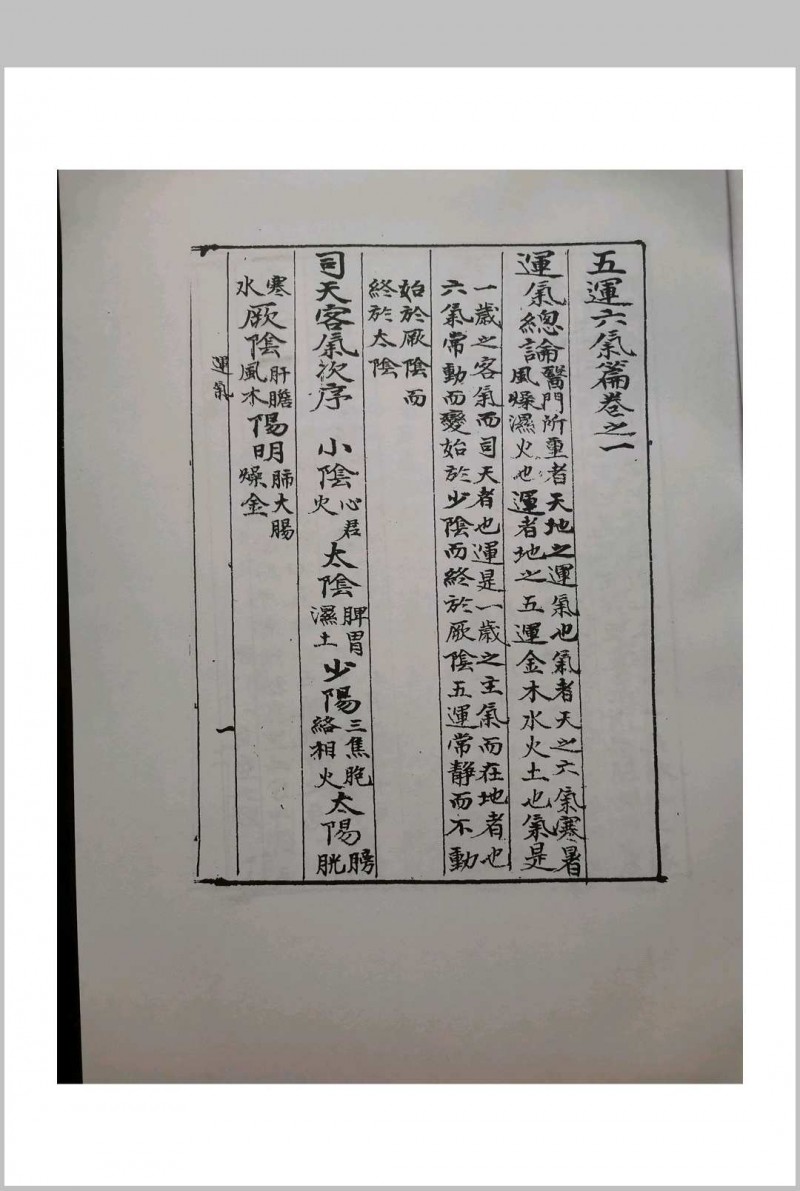 五運六氣篇卷之一
運氣總論
醫門所重者天地之運氣也氣者天之六氣寒暑
風燥濕火也運者地之五運金木水火土也氣是
一歲之客氣而司天者也運是一歲之主氣而在地者也
六氣常動而變始於少陰而終於厥陰五運常靜而不動
始於厥陰而
終於太陰
司天客氣次序 小陰心君火 太陰脾胃濕土 少陽三焦胞絡相火 太陽膀胱
寒水 厥陰肝膽風木 陽明肺大腸燥金
運氣
一